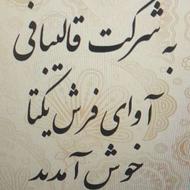 به شرکت قالیبافی
آوای فرش یکتا
خوش آمدید